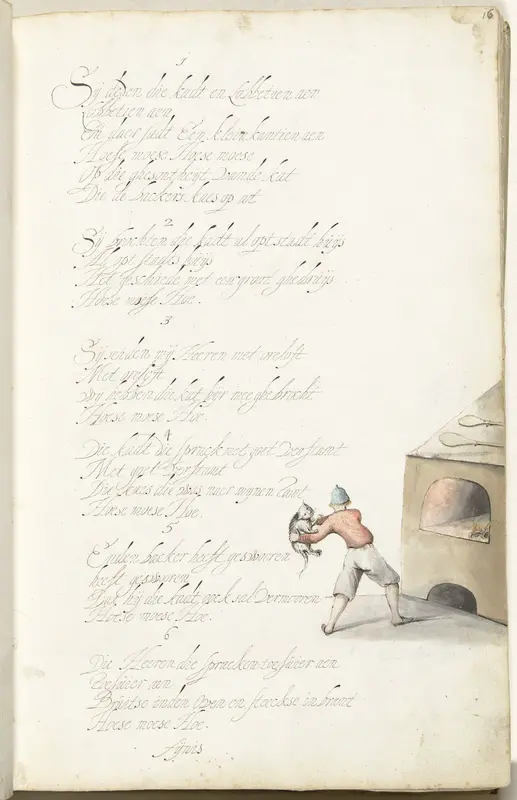 16
1
Sij deden die kadt en Labbetien aen
Labbetien aen
En daer sadt Een klein kantien aen
Hoese moese Hoese moese
Op die ghesontheyt vande kat
Die de backers kaes op at
2
Sij brochten die kadt al opt stadt huijs
Al opt huijs
Het geschiede met een groot ghedruijs
Hoese moese Hoe.
3
Sij seiden mijn Heeren met
Met
wij hebben die kat hier mee ghebracht
Hoese moese Hoe.
4
Die kadt die sprack met goet Verstant
Met goet Verstant
Die kaes die was naer mijnen Tant
Hoese moese Hoe.
5
Enden backer heeft geswooren
heeft geswooren
Dat hij die kadt oock sal Vermooren
Hoese moese Hoe.
6
Die Heeren die spraecken aen
aen
inden Oven en steeckse in brant
Hoese moese Hoe.
Fijnis